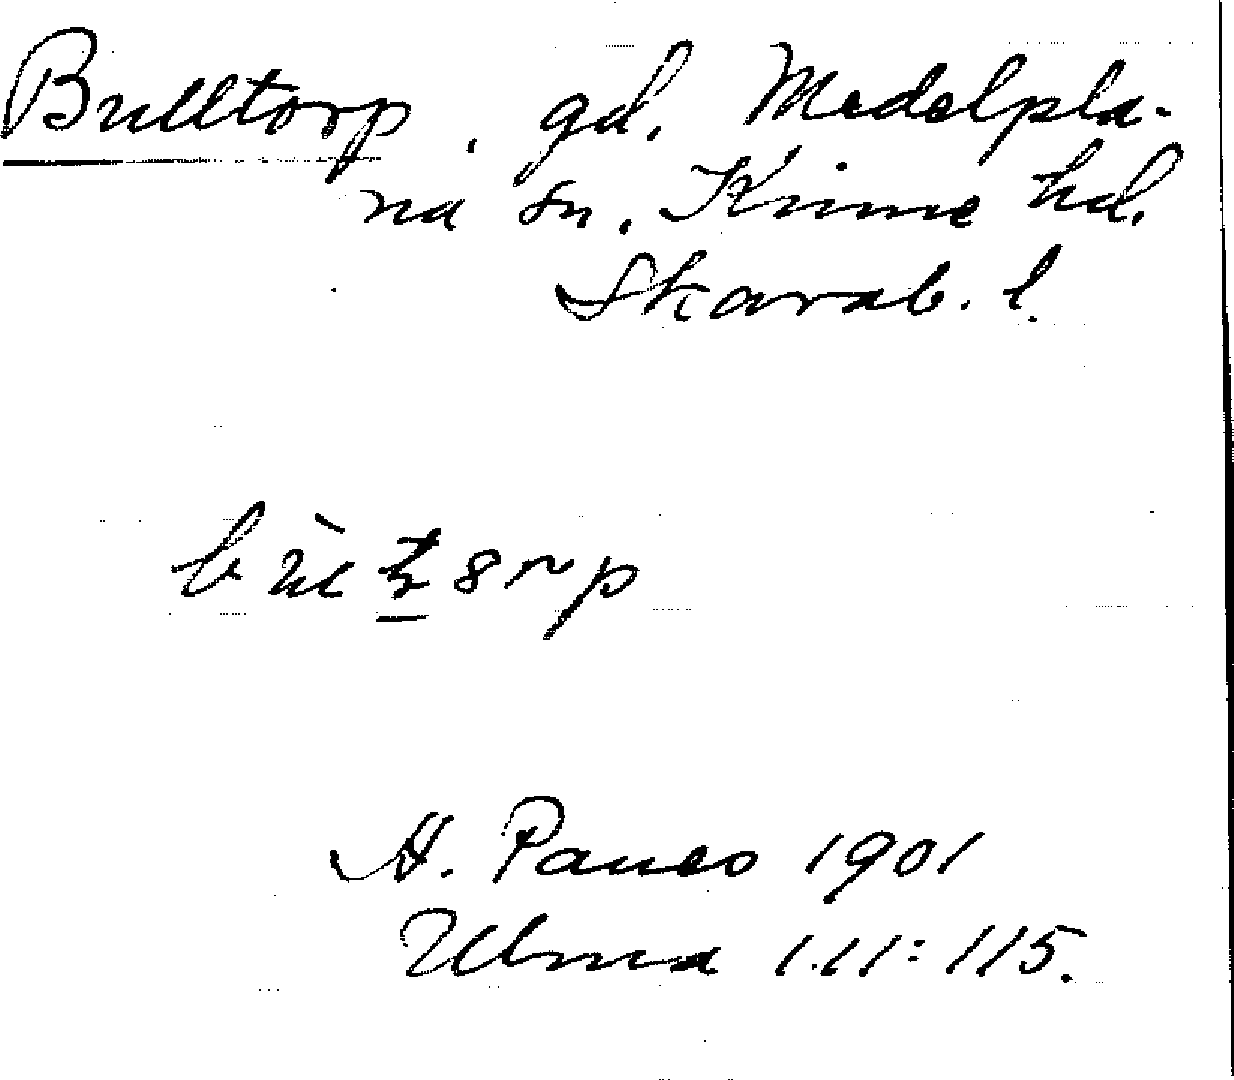 Bulltorp, gd. Medelpla-
na sn. Kinne hd.
Skarab. l.
A. Paues 1901
Ulma 1.11:115.